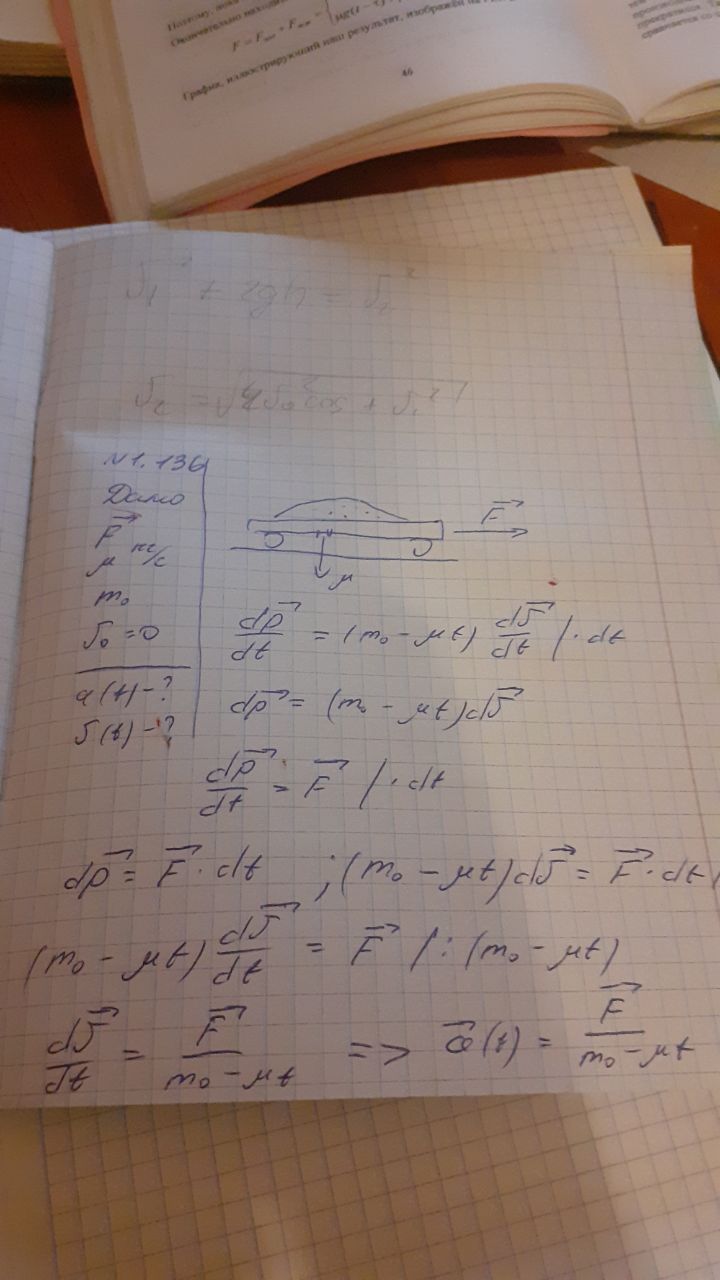 Поэтому, пока
Окончательно находим
График, иллюстрирующий наш результат, изображён на
46
N1.136
Дано
F⃗
μ кг/с
m₀
v₀ = 0
a(t) - ?
v(t) - ?
F⃗
μ
dp⃗/dt = (m₀ - μt) dv⃗/dt /· dt
dp⃗ = (m₀ - μt)dv⃗
dp⃗/dt = F⃗ /· dt
dp⃗ = F⃗ · dt ; (m₀ - μt)dv⃗ = F⃗ · dt
(m₀ - μt) dv⃗/dt = F⃗ /: (m₀ - μt)
dv⃗/dt = F⃗/(m₀ - μt) => a⃗(t) = F⃗/(m₀ - μt)